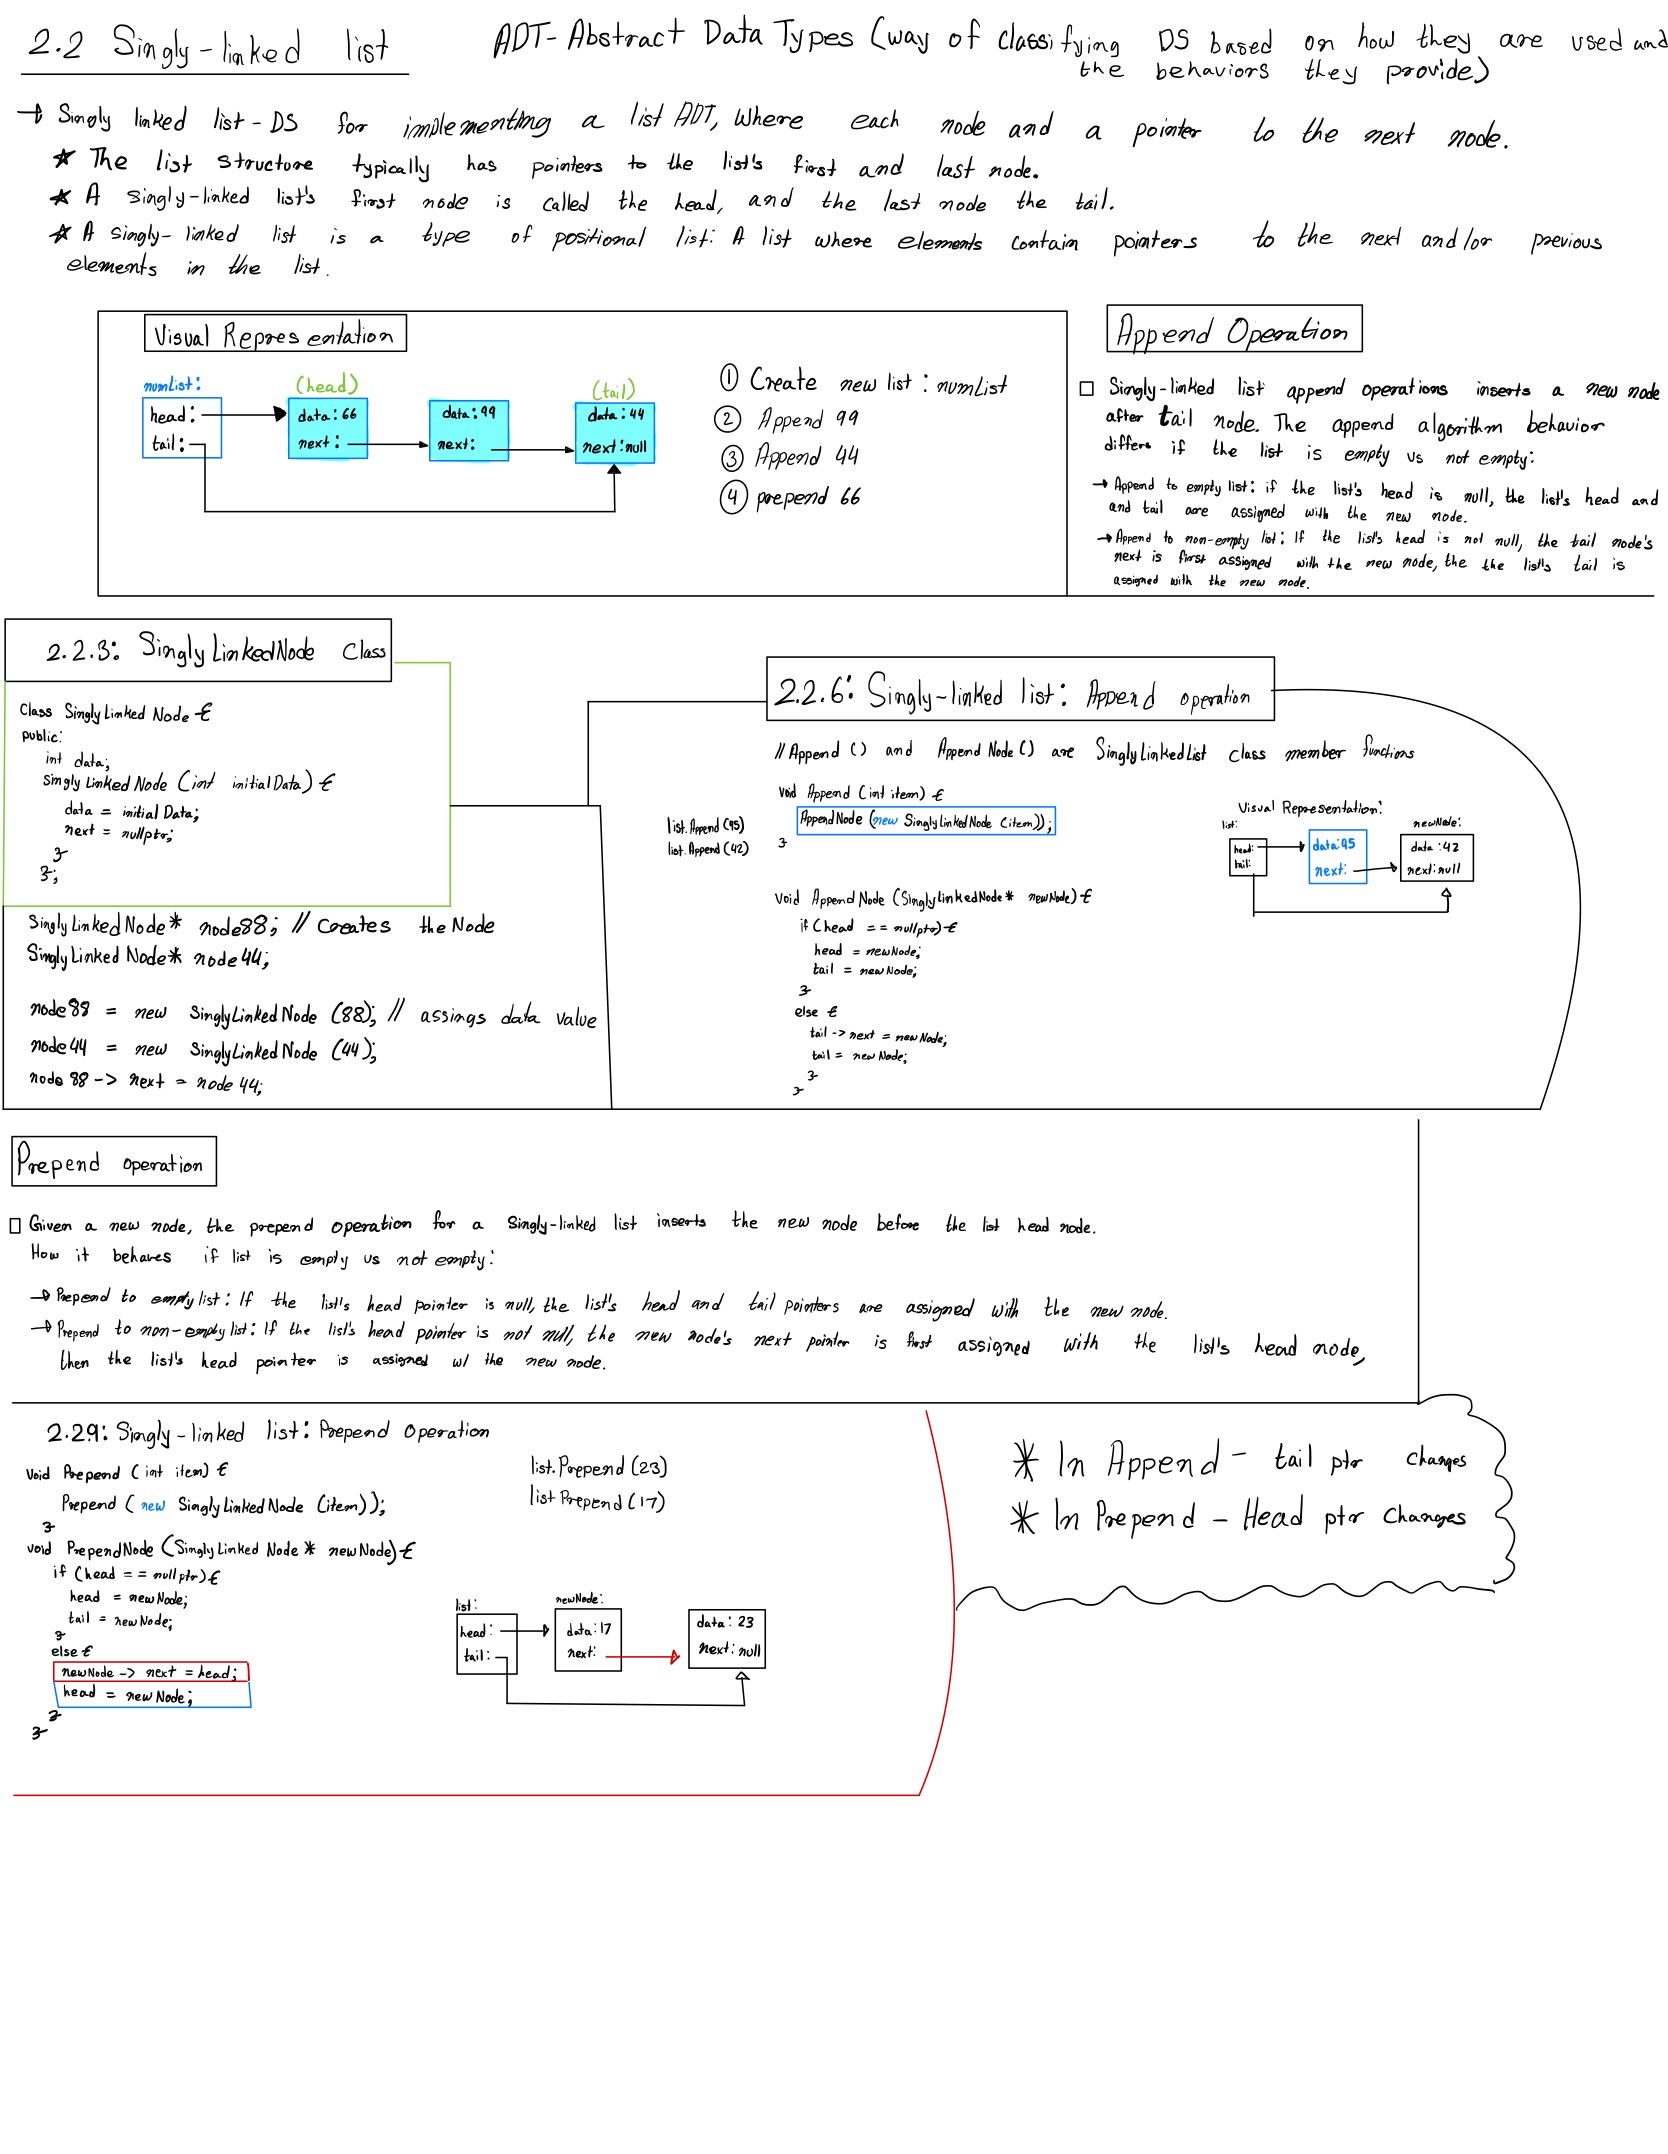 2.2 Singly-linked list
ADT- Abstract Data Types (way of classifying DS based on how they are used and
the behaviors they provide)
→ Singly linked list - DS for implementing a list ADT, where each node and a pointer to the next node.
* The list structure typically has pointers to the list's first and last node.
* A singly-linked list's first node is called the head, and the last node the tail.
* A singly-linked list is a type of positional list: A list where elements contain pointers to the next and/or previous
elements in the list.
Visual Representation
numList:
head:
tail:
(head)
data: 66
next:
data: 99
next:
(tail)
data: 44
next: null
① Create new list: numList
② Append 99
③ Append 44
④ prepend 66
Append Operation
□ Singly-linked list append operations inserts a new node
after tail node. The append algorithm behavior
differs if the list is empty vs not empty:
→ Append to empty list: if the list's head is null, the list's head and
and tail are assigned with the new node.
→ Append to non-empty list: If the list's head is not null, the tail node's
next is first assigned with the new node, the the list's tail is
assigned with the new node.
2.2.3: SinglyLinkedNode Class
Class SinglyLinked Node {
public:
int data;
SinglyLinkedNode (int initialData) {
data = initialData;
next = nullptr;
}
};
SinglyLinkedNode* node88; // Creates the Node
SinglyLinkedNode* node44;
node88 = new SinglyLinkedNode (88); // assings data value
node44 = new SinglyLinkedNode (44);
node 88 -> next = node 44;
2.2.6: Singly-linked list: Append operation
// Append () and Append Node () are SinglyLinkedList class member functions
list.Append (95)
list.Append (42)
void Append (int item) {
AppendNode (new SinglyLinkedNode (item));
}
void Append Node (SinglyLinkedNode* newNode) {
if (head == nullptr) {
head = newNode;
tail = newNode;
}
else {
tail -> next = newNode;
tail = newNode;
}
}
Visual Representation:
list:
head:
tail:
data: 95
next:
newNode:
data: 42
next: null
Prepend operation
□ Given a new node, the prepend operation for a singly-linked list inserts the new node before the list head node.
How it behaves if list is empty vs not empty:
→ Prepend to empty list: If the list's head pointer is null, the list's head and tail pointers are assigned with the new node.
→ Prepend to non-empty list: If the list's head pointer is not null, the new node's next pointer is first assigned with the list's head node,
then the list's head pointer is assigned w/ the new node.
2.29: Singly-linked list: Prepend Operation
void Prepend (int item) {
Prepend (new SinglyLinkedNode (item));
}
void PrependNode (SinglyLinked Node * newNode) {
if (head == nullptr) {
head = newNode;
tail = newNode;
}
else {
newNode -> next = head;
head = newNode;
}
}
list.Prepend (23)
list Prepend (17)
list:
head:
tail:
newNode:
data: 17
next:
data: 23
next: null
* In Append - tail ptr changes
* In Prepend - Head ptr changes